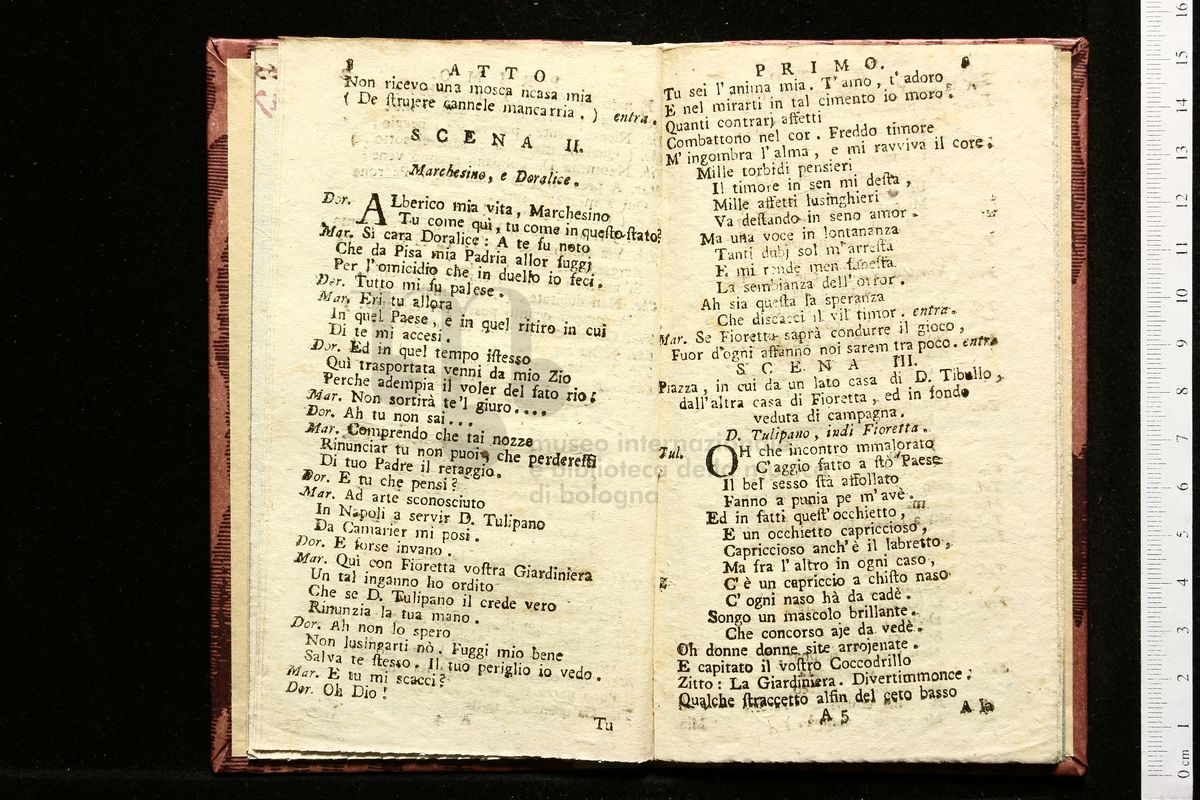 8 ATTO
Non ricevo una mosca ncasa mia
( De strujere cannele mancarria. ) entra.
SCENA II.
Marchesino, e Doralice.
Dor. ALberico mia vita, Marchesino
Tu come quì, tu come in questo stato?
Mar. Sì cara Doralice: A te fu noto
Che da Pisa mia Padria allor fuggj
Per l'omicidio che in duello io feci.
Dor. Tutto mi fu palese.
Mar. Eri tu allora
In quel Paese, e in quel ritiro in cui
Di te mi accesi.
Dor. Ed in quel tempo istesso
Quì trasportata venni da mio Zio
Perche adempia il voler del fato rio;
Mar. Non sortirà te'l giuro....
Dor. Ah tu non sai...
Mar. Comprendo che tai nozze
Rinunciar tu non puoi, che perderesti
Di tuo Padre il retaggio.
Dor. E tu che pensi?
Mar. Ad arte sconosciuto
In Napoli a servir D. Tulipano
Da Camarier mi posi.
Dor. E forse invano.
Mar. Quì con Fioretta vostra Giardiniera
Un tal inganno ho ordito
Che se D. Tulipano il crede vero
Rinunzia la tua mano.
Dor. Ah non lo spero
Non lusingarti nò. Fuggi mio bene
Salva te stesso. Il tuo periglio io vedo.
Mar. E tu mi scacci?
Dor. Oh Dio!
Tu
PRIMO.
Tu sei l'anima mia. T'amo, t'adoro
E nel mirarti in tal cimento io moro.
Quanti contrarj affetti
Combattono nel cor. Freddo timore
M'ingombra l'alma, e mi ravviva il core;
Mille torbidi pensieri
Il timore in sen mi desta,
Mille affetti lusinghieri
Va destando in seno amor.
Ma una voce in lontananza
Tanti dubj sol m'arresta
E mi rende men funesta
La sembianza dell'orror.
Ah sia questa la speranza
Che discacci il vil timor. entra.
Mar. Se Fioretta saprà condurre il gioco,
Fuor d'ogni affanno noi sarem tra poco. entra
SCENA III.
Piazza, in cui da un lato casa di D. Tibullo,
dall'altra casa di Fioretta, ed in fondo
veduta di campagna.
D. Tulipano, indi Fioretta.
Tul. OH che incontro mmalorato
C'aggio fatto a sto Paese
Il bel sesso stà affollato
Fanno a punia pe m'avè.
Ed in fatti quest'occhietto,
E un occhietto capriccioso,
Capriccioso anch'è il labretto,
Ma fra l'altro in ogni caso,
C'è un capriccio a chisto naso
C'ogni naso hà da cadè.
Songo un mascolo brillante.
Che concorso aje da vedè.
Oh donne donne site arrojenate.
E capitato il vostro Coccodrillo
Zitto: La Giardiniera. Divertimmonce;
Qualche straccetto alfin del ceto basso
A 5
museo internazionale
e biblioteca della musica
di bologna
16
15
14
13
12
11
10
9
8
7
6
5
4
3
2
1
0 cm